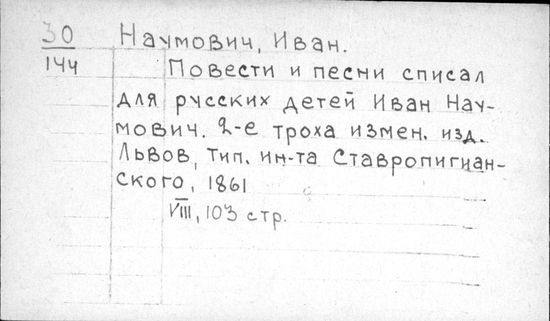 30 Наумович, Иван.
144 Повести и песни списал
для русских детей Иван Нау-
мович. 2-е троха измен. изд.
Львов, тип. ин-та Ставропигиан-
ского, 1861
VIII, 103 стр.